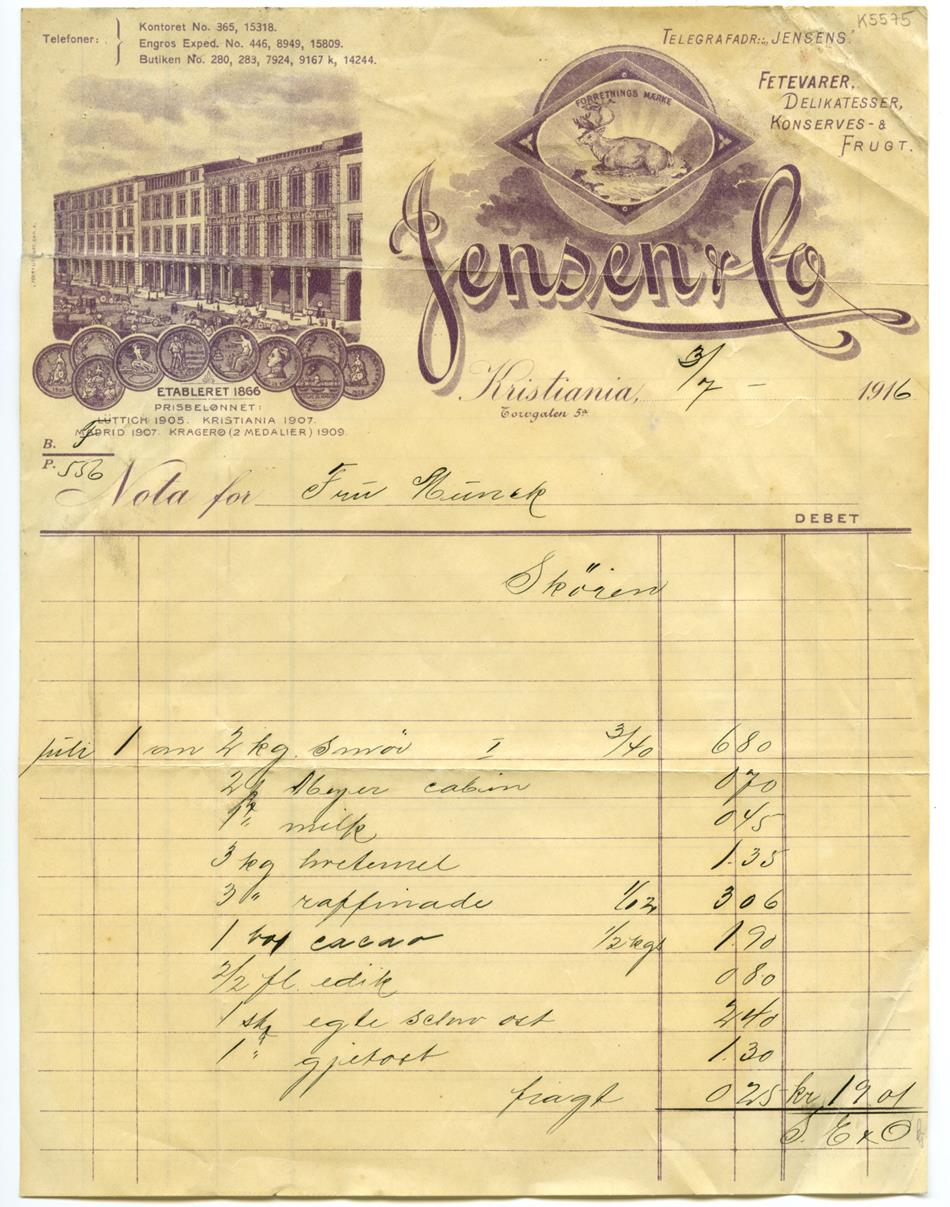 K5575
Telefoner:
Kontoret No. 365, 15318.
Engros Exped. No. 446, 8949, 15809.
Butiken No. 280, 283, 7924, 9167 k, 14244.
TELEGRAFADR: „JENSENS."
FETEVARER,
DELIKATESSER,
KONSERVES- &
FRUGT.
FORRETNINGS MÆRKE
Jensen & Co
ETABLERET 1866
PRISBELØNNET:
LÜTTICH 1905. KRISTIANIA 1907.
MADRID 1907. KRAGERØ (2 MEDALIER) 1909.
Kristiania, 3/7 - 1916
Torvgaten 5a
B.
P. 556
Nota for Fru Munck
DEBET
Skören
juli 1 2 kg smör I 3/40 6 80
2 Meyer 0 70
1 " milk 0 45
3 kg hvetemel 1.35
3 " raffinade 1/02 3 06
1 cacao 1/2 kgs 1.90
2/2 fl. edik 0 80
1 stk egte ost 2 40
1 " gjetost 1.30
fragt 0 25 kr 19 01
S. E & O